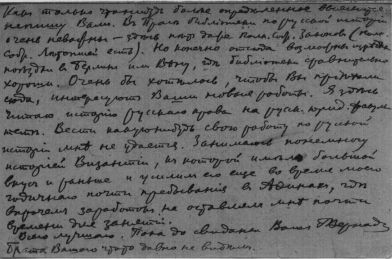 Как только что нибудь более определенное выяснится
напишу Вам. В Праге библиотеки по русской истории
очень неважны – здесь нет даже Полн. Собр. Законов (Полн.
Собр. Летописей есть). Но конечно отсюда возможны иногда
поездки в Берлин или Вену, где библиотеки сравнительно
хороши. Очень бы хотелось, чтобы Вы приехали
сюда, интересуют Ваши новые работы. Я здесь
читаю историю русского права на русск. юрид. факуль
тете. Вести какую нибудь свою работу по русской
истории мне не удается. Занимаюсь понемногу
историей Византии, к которой имел большой
вкус и раньше и усилил его еще во время моего
годичного почти пребывания в Афинах, где
впрочем заработок не оставлял мне почти
времени для занятий.
Всего лучшего. Пока до свидания Ваш Г Вернадс
Брата Вашего что то давно не видели.